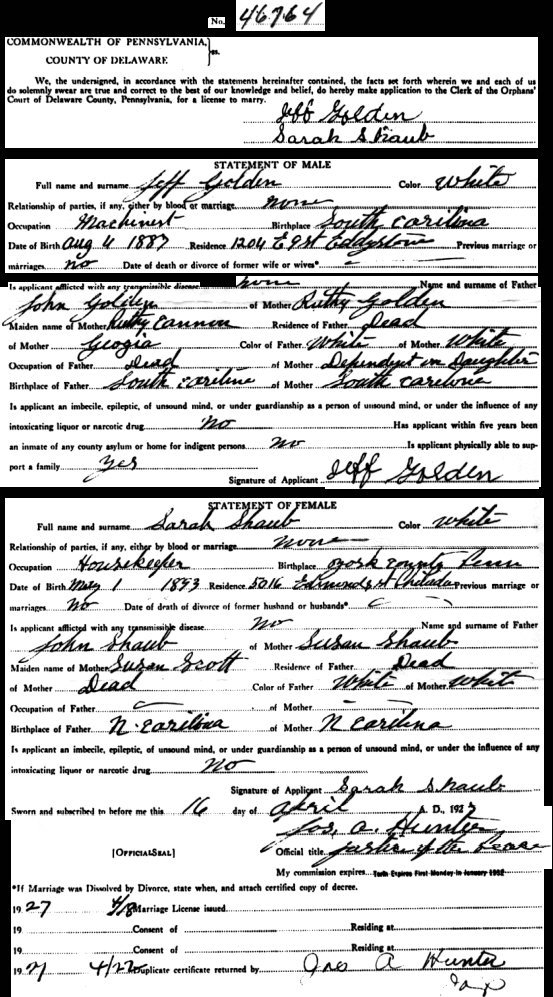 No. 46764
COMMONWEALTH OF PENNSYLVANIA, } ss.
COUNTY OF DELAWARE
We, the undersigned, in accordance with the statements hereinafter contained, the facts set forth wherein we and each of us
do solemnly swear are true and correct to the best of our knowledge and belief, do hereby make application to the Clerk of the Orphans'
Court of Delaware County, Pennsylvania, for a license to marry.
Jeff Golden
Sarah Shaub
STATEMENT OF MALE
Full name and surname Jeff Golden Color White
Relationship of parties, if any, either by blood or marriage none
Occupation Machinest Birthplace South Carilina
Date of Birth Aug 4 1887 Residence 1204 E 9 St Eddystone Previous marriage or
marriages No Date of death or divorce of former wife or wives*
Is applicant afflicted with any transmissible disease none Name and surname of Father
John Golden of Mother Ruthy Golden
Maiden name of Mother Ruthy Cannon Residence of Father Dead
of Mother Geogia Color of Father White of Mother White
Occupation of Father Dead of Mother Dependent on Daughter
Birthplace of Father South Cariline of Mother South Carelina
Is applicant an imbecile, epileptic, of unsound mind, or under guardianship as a person of unsound mind, or under the influence of any
intoxicating liquor or narcotic drug No Has applicant within five years been
an inmate of any county asylum or home for indigent persons No Is applicant physically able to sup-
port a family yes
Signature of Applicant Jeff Golden
STATEMENT OF FEMALE
Full name and surname Sarah Shaub Color White
Relationship of parties, if any, either by blood or marriage none
Occupation Housekeeper Birthplace York County Penn
Date of Birth May 1 1893 Residence 5016 Edmunds st Philada Previous marriage or
marriages No Date of death of divorce of former husband or husbands*
Is applicant afflicted with any transmissible disease No Name and surname of Father
John Shaub of Mother Susan Shaub
Maiden name of Mother Susan Scott Residence of Father Dead
of Mother Dead Color of Father White of Mother White
Occupation of Father of Mother
Birthplace of Father N. Carilina of Mother N Carilina
Is applicant an imbecile, epileptic, of unsound mind, or under guardianship as a person of unsound mind, or under the influence of any
intoxicating liquor or narcotic drug No
Signature of Applicant Sarah Shaub
Sworn and subscribed to before me this 16 day of April A. D., 1927
Jos, A. Hunter
[OFFICIAL SEAL] Official title Justice of the Peace
My commission expires Term Expires First Monday in January 1932
*If Marriage was Dissolved by Divorce, state when, and attach certified copy of decree.
1927 4/18 Marriage License issued
19 Consent of Residing at
19 Consent of Residing at
1927 4/22 Duplicate certificate returned by Jos A Hunter